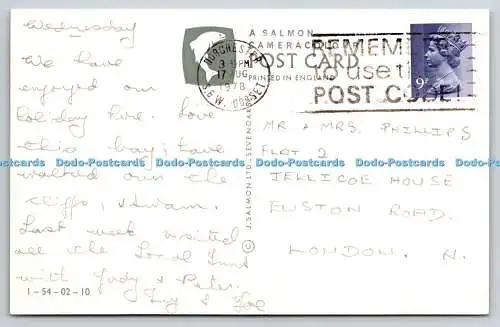 Wednesday
We have
enjoyed our
holiday here. Love
this bay, have
walked over the
cliffs, & swam.
Last week visited
all the Local
with Judy & Peter.
Ivy &
1-54-02-10
A SALMON
CAMERACOLOUR
POST CARD
PRINTED IN ENGLAND
© J. SALMON LTD., SEVENOAKS
DORCHESTER
PM
17 AUG
1978
DORSET
REMEMBER
to use the
POST CODE!
9
MR & MRS. PHILLIPS
FLAT 2
JELLICOE HOUSE
EUSTON ROAD.
LONDON. N.
Dodo-Postcards Dodo-Postcards Dodo-Postcards Dodo-Postcards Dodo-Postcards Dodo-Postcards